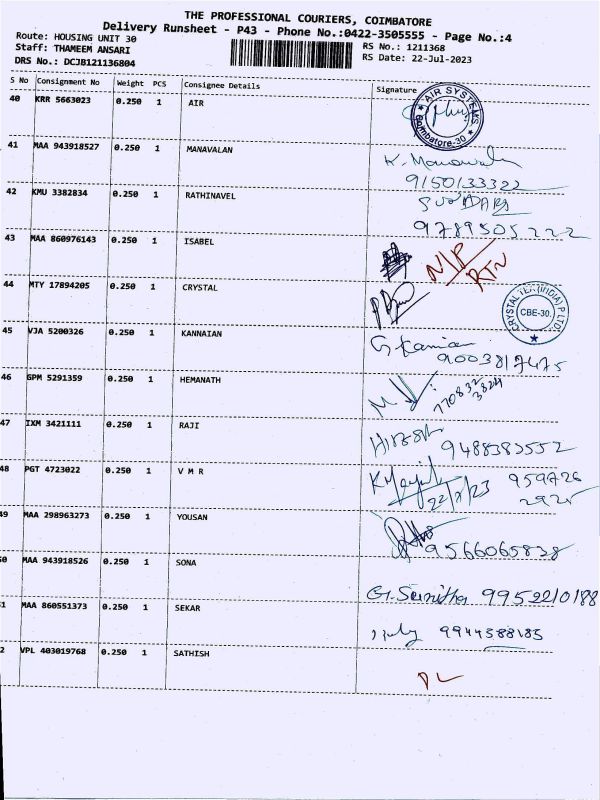 THE PROFESSIONAL COURIERS, COIMBATORE
Delivery Runsheet - P43 - Phone No.:0422-3505555 - Page No.:4
Route: HOUSING UNIT 30
RS No.: 1211368
Staff: THAMEEM ANSARI
RS Date: 22-Jul-2023
DRS No.: DCJB121136804
S No Consignment No Weight PCS Consignee Details Signature
40 KRR 5663023 0.250 1 AIR
AIR SYSTEMS
Coimbatore-30
41 MAA 943918527 0.250 1 MANAVALAN
9150133322
42 KMU 3382834 0.250 1 RATHINAVEL
9789505222
43 MAA 860976143 0.250 1 ISABEL
N/P
RTN
44 MTY 17894205 0.250 1 CRYSTAL
CRYSTAL TEX (INDIA) P LTD
CBE-30.
45 VJA 5200326 0.250 1 KANNAIAN
9003817475
46 GPM 5291359 0.250 1 HEMANATH
47 IXM 3421111 0.250 1 RAJI
9488383552
48 PGT 4723022 0.250 1 V M R
22/7/23 959726
2925
49 MAA 298963273 0.250 1 YOUSAN
9566065838
50 MAA 943918526 0.250 1 SONA
G. Sumitha 9952210188
1 MAA 860551373 0.250 1 SEKAR
9944588185
2 VPL 403019768 0.250 1 SATHISH
DL